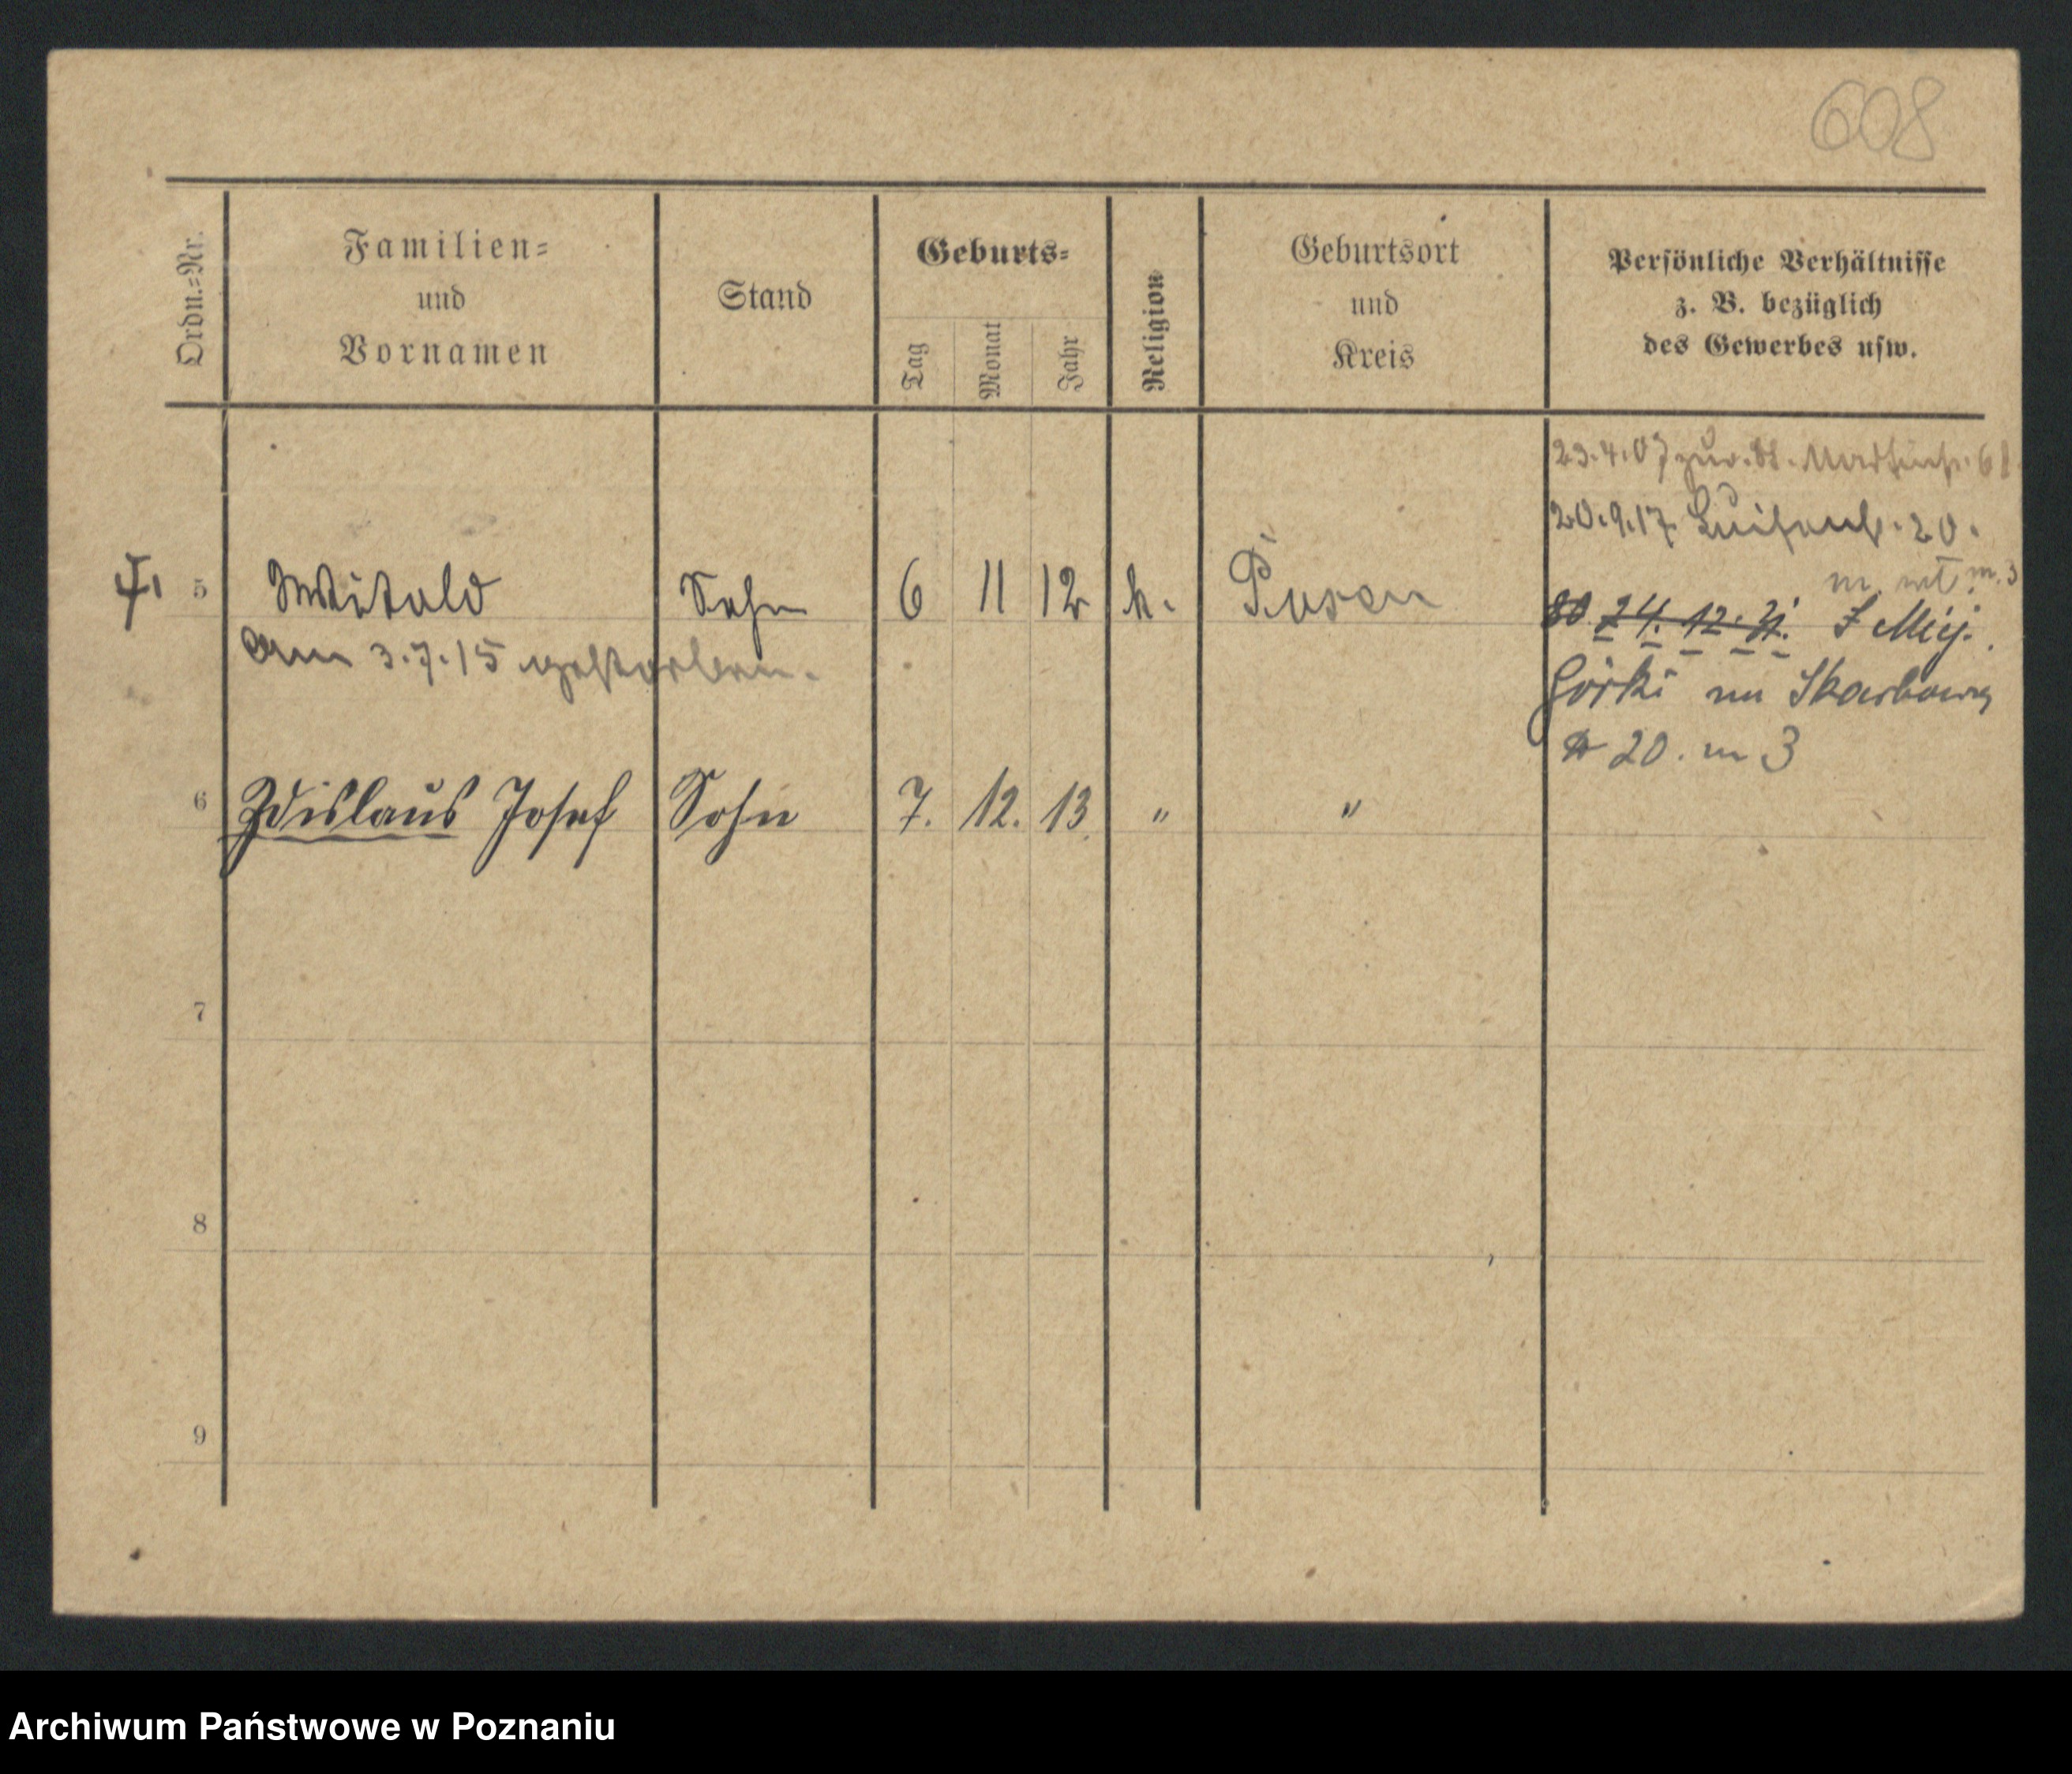 608
Ordn.=Nr.
Familien=
und
Vornamen
Stand
Geburts=
Tag
Monat
Jahr
Religion
Geburtsort
und
Kreis
Persönliche Verhältnisse
z. B. bezüglich
des Gewerbes usw.
23.4.07 zur. St. Martinstr. 68
20.9.17. Luisenstr. 20.
m. 3
5 Witold Sohn 6 11 12 k. Posen
24. 12. 21.
am 3.7.15 gestorben.
Górki na Skarbową
20. m 3
6 Zdislaus Josef Sohn 7. 12. 13. " "
7
8
9
Archiwum Państwowe w Poznaniu